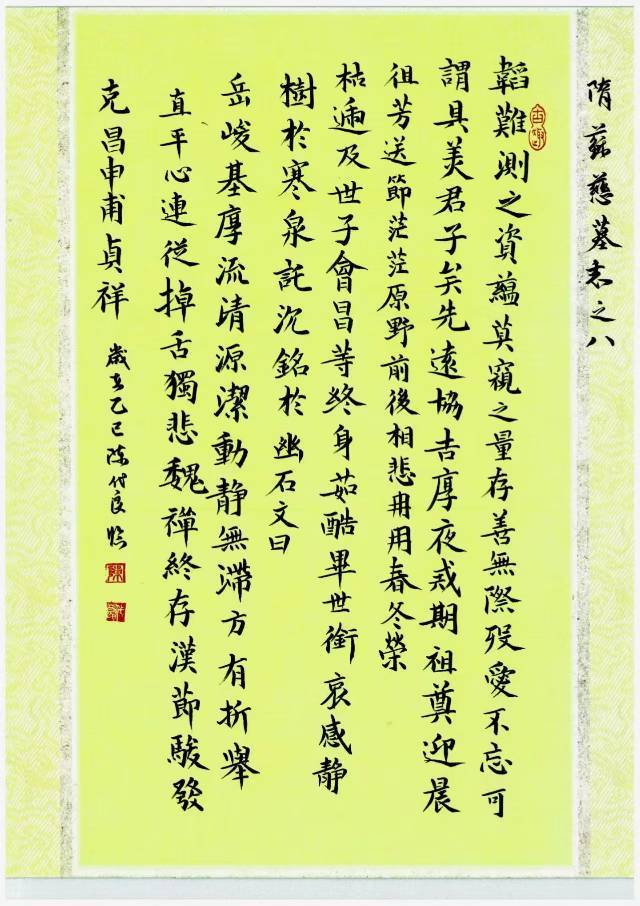 隋蘇慈墓志之八
韜難測之資蘊莫窺之量存善無際歿愛不忘可
謂具美君子矣先遠協吉厚夜戒期祖奠迎晨
徂芳送節茫茫原野前後相悲冉冉春冬榮
枯遞及世子會昌等終身茹酷畢世銜哀感靜
樹於寒泉託沉銘於幽石文曰
岳峻基厚流清源潔動靜無滯方有折舉
直平心連從掉舌獨悲魏禪終存漢節駿發
克昌申甫貞祥 歲在乙巳陈付良臨